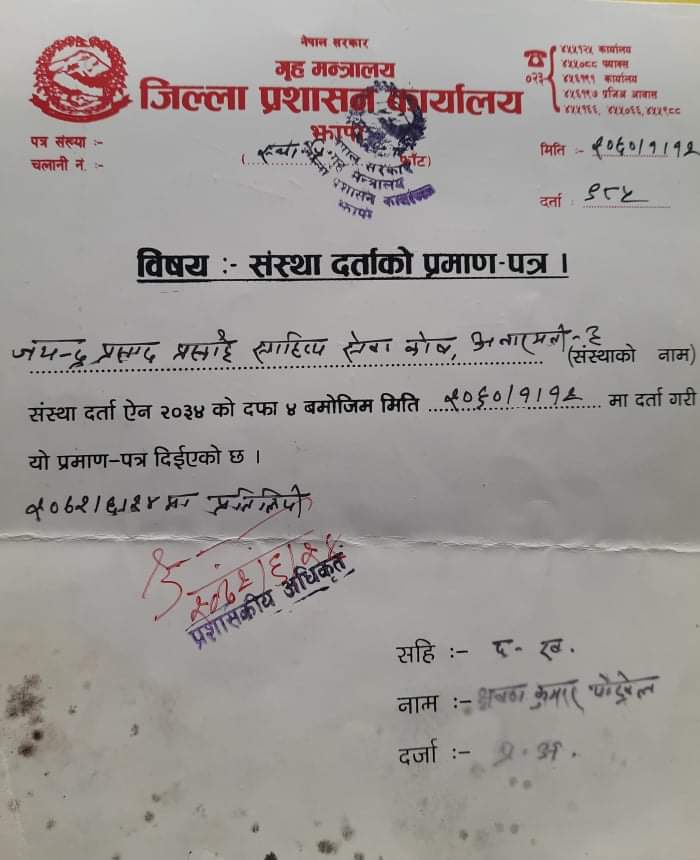 नेपाल सरकार
गृह मन्त्रालय
जिल्ला प्रशासन कार्यालय
झापा
☎ ०२३-
४५५१२५ कार्यालय
४५५०८८ फ्याक्स
४५६१९१ कार्यालय
४५६१९७ प्रजिअ आवास
४५५१६६, ४५५०६६, ४५५१८८
पत्र संख्या :-
चलानी नं. :-
(स्था............फाँट)
मिति :- २०६०/१/१२
दर्ता : ९८५
नेपाल सरकार
गृह मन्त्रालय
जिल्ला प्रशासन कार्यालय
झापा
विषय :- संस्था दर्ताको प्रमाण-पत्र ।
जयन्द्र प्रसाद प्रसाई साहित्य सेवा कोष, अनारमनी-३
(संस्थाको नाम)
संस्था दर्ता ऐन २०३४ को दफा ४ बमोजिम मिति २०६०/१/१२ मा दर्ता गरी
यो प्रमाण-पत्र दिईएको छ ।
२०७२/६/२४ मा प्रतिलिपी
२०७२/६/२४
प्रशासकीय अधिकृत
सहि :- द. ख.
नाम :- कुमार पोख्रेल
दर्जा :- प्र. अ.